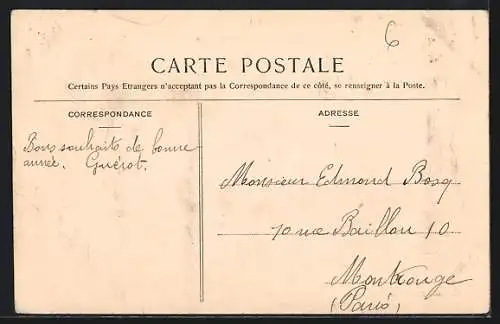 6
CARTE POSTALE
Certains Pays Etrangers n'acceptant pas la Correspondance de ce côté, se renseigner à la Poste.
CORRESPONDANCE
Bons souhaits de bonne
année. Guérot.
ADRESSE
Monsieur Edmond Bosq
10 rue Baillou 10
Montrouge
(Paris)